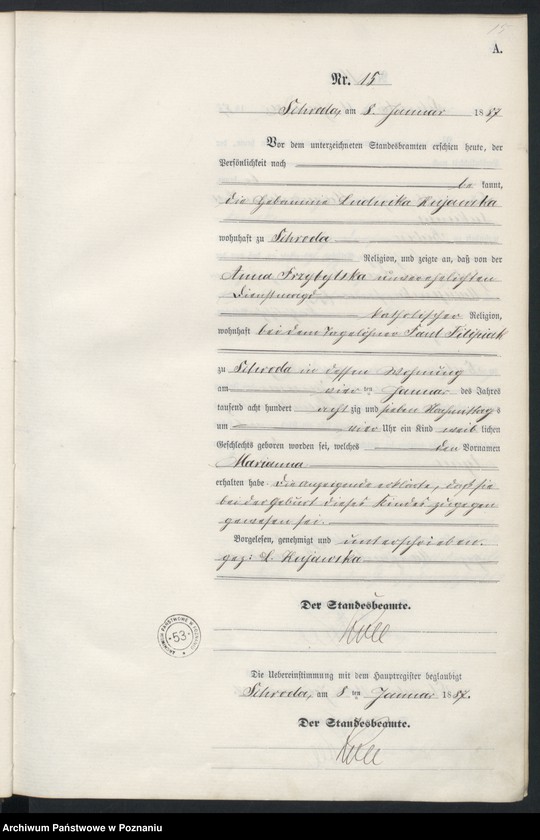 15
A.
Nr. 15
Schroda, am 8. Januar 1887
Vor dem unterzeichneten Standesbeamten erschien heute, der
Persönlichkeit nach
be kannt,
die Hebamme Ludwika Kujawska
wohnhaft zu Schroda
Religion, und zeigte an, daß von der
Anna Przybylska unverehelichten
Dienstmagd
katholischer Religion,
wohnhaft bei dem Tagelöhner Paul Filipiak
zu Schroda in dessen Wohnung
am vier ten Januar des Jahres
tausend acht hundert acht zig und sieben Nachmittag s
um vier Uhr ein Kind weib lichen
Geschlechts geboren worden sei, welches den Vornamen
Marianna
erhalten habe Die Anzeigende erklärte, daß sie
bei der Geburt dieses Kindes zugegen
gewesen sei.
Vorgelesen, genehmigt und unterschrieben.
gez: L. Kujawska
Der Standesbeamte.
Die Uebereinstimmung mit dem Hauptregister beglaubigt
Schroda, am 8 ten Januar 1887.
Der Standesbeamte.
ARCHIWUM PAŃSTWOWE W POZNANIU
53
Archiwum Państwowe w Poznaniu